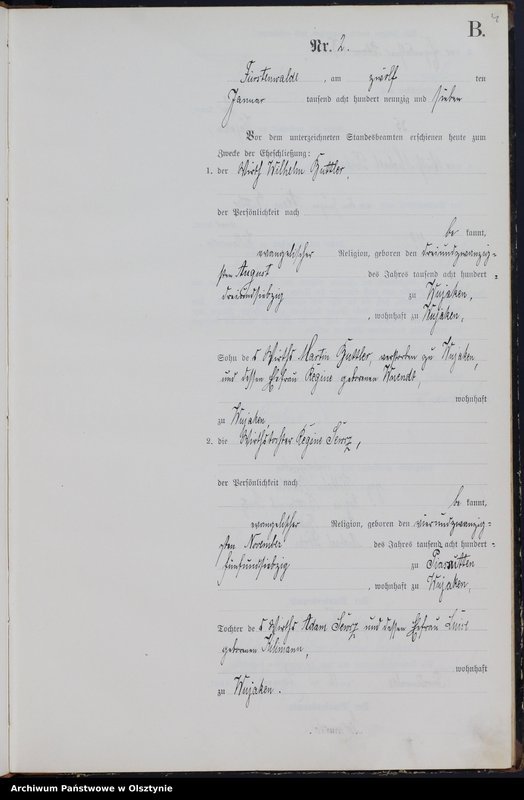 4
B.
Nr. 2.
Fürstenwalde, am zwölf ten
Januar tausend acht hundert neunzig und sieben
Vor dem unterzeichneten Standesbeamten erschienen heute zum
Zwecke der Eheschließung:
1. der Wirth Wilhelm
der Persönlichkeit nach
be kannt,
evangelischer Religion, geboren den dreiundzwanzig-
sten August des Jahres tausend acht hundert
dreiundsiebzig zu Wujaken,
, wohnhaft zu Wujaken,
Sohn des Wirths Martin verstorben zu Wujaken,
und dessen Ehefrau Regine geborenen
wohnhaft
zu Wujaken,
2. die Wirthstochter Regine
der Persönlichkeit nach
be kannt,
evangelischer Religion, geboren den vierundzwanzig-
sten November des Jahres tausend acht hundert
fünfundsiebzig zu
, wohnhaft zu Wujaken,
Tochter des Wirths Adam und dessen Ehefrau
geborenen
wohnhaft
zu Wujaken.
Archiwum Państwowe w Olsztynie